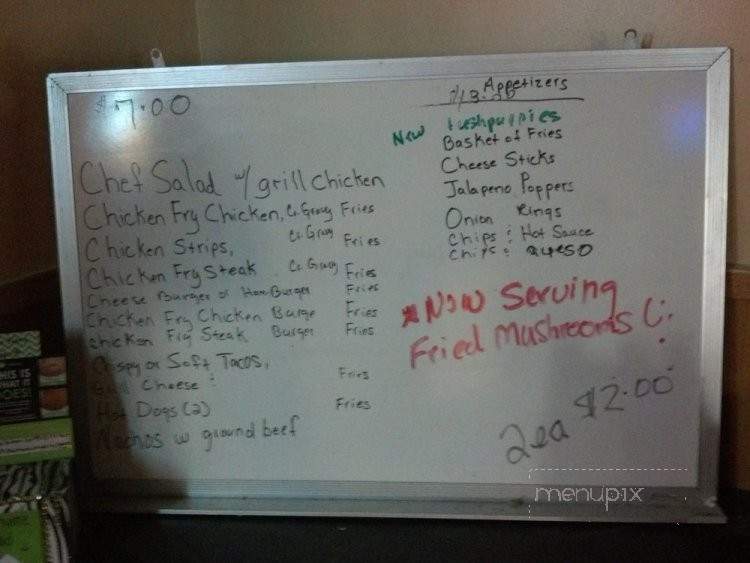 $7.00
Chef Salad w/ grill Chicken
Chicken Fry Chicken, Cr. Gravy Fries
Chicken Strips, Cr. Gravy Fries
Chicken Fry Steak Cr. Gravy Fries
Cheese Burger or Ham Burger Fries
Chicken Fry Chicken Burge Fries
Chicken Fry Steak Burger Fries
Crispy or Soft Tacos,
Grill Cheese Fries
Hot Dogs (2) Fries
Nachos w ground beef
Appetizers
New Hushpuppies
Basket of Fries
Cheese Sticks
Jalapeno Poppers
Onion Rings
Chips : Hot Sauce
Chips : Queso
*Now Serving
Fried Mushrooms (:
2ea $2.00
menupix